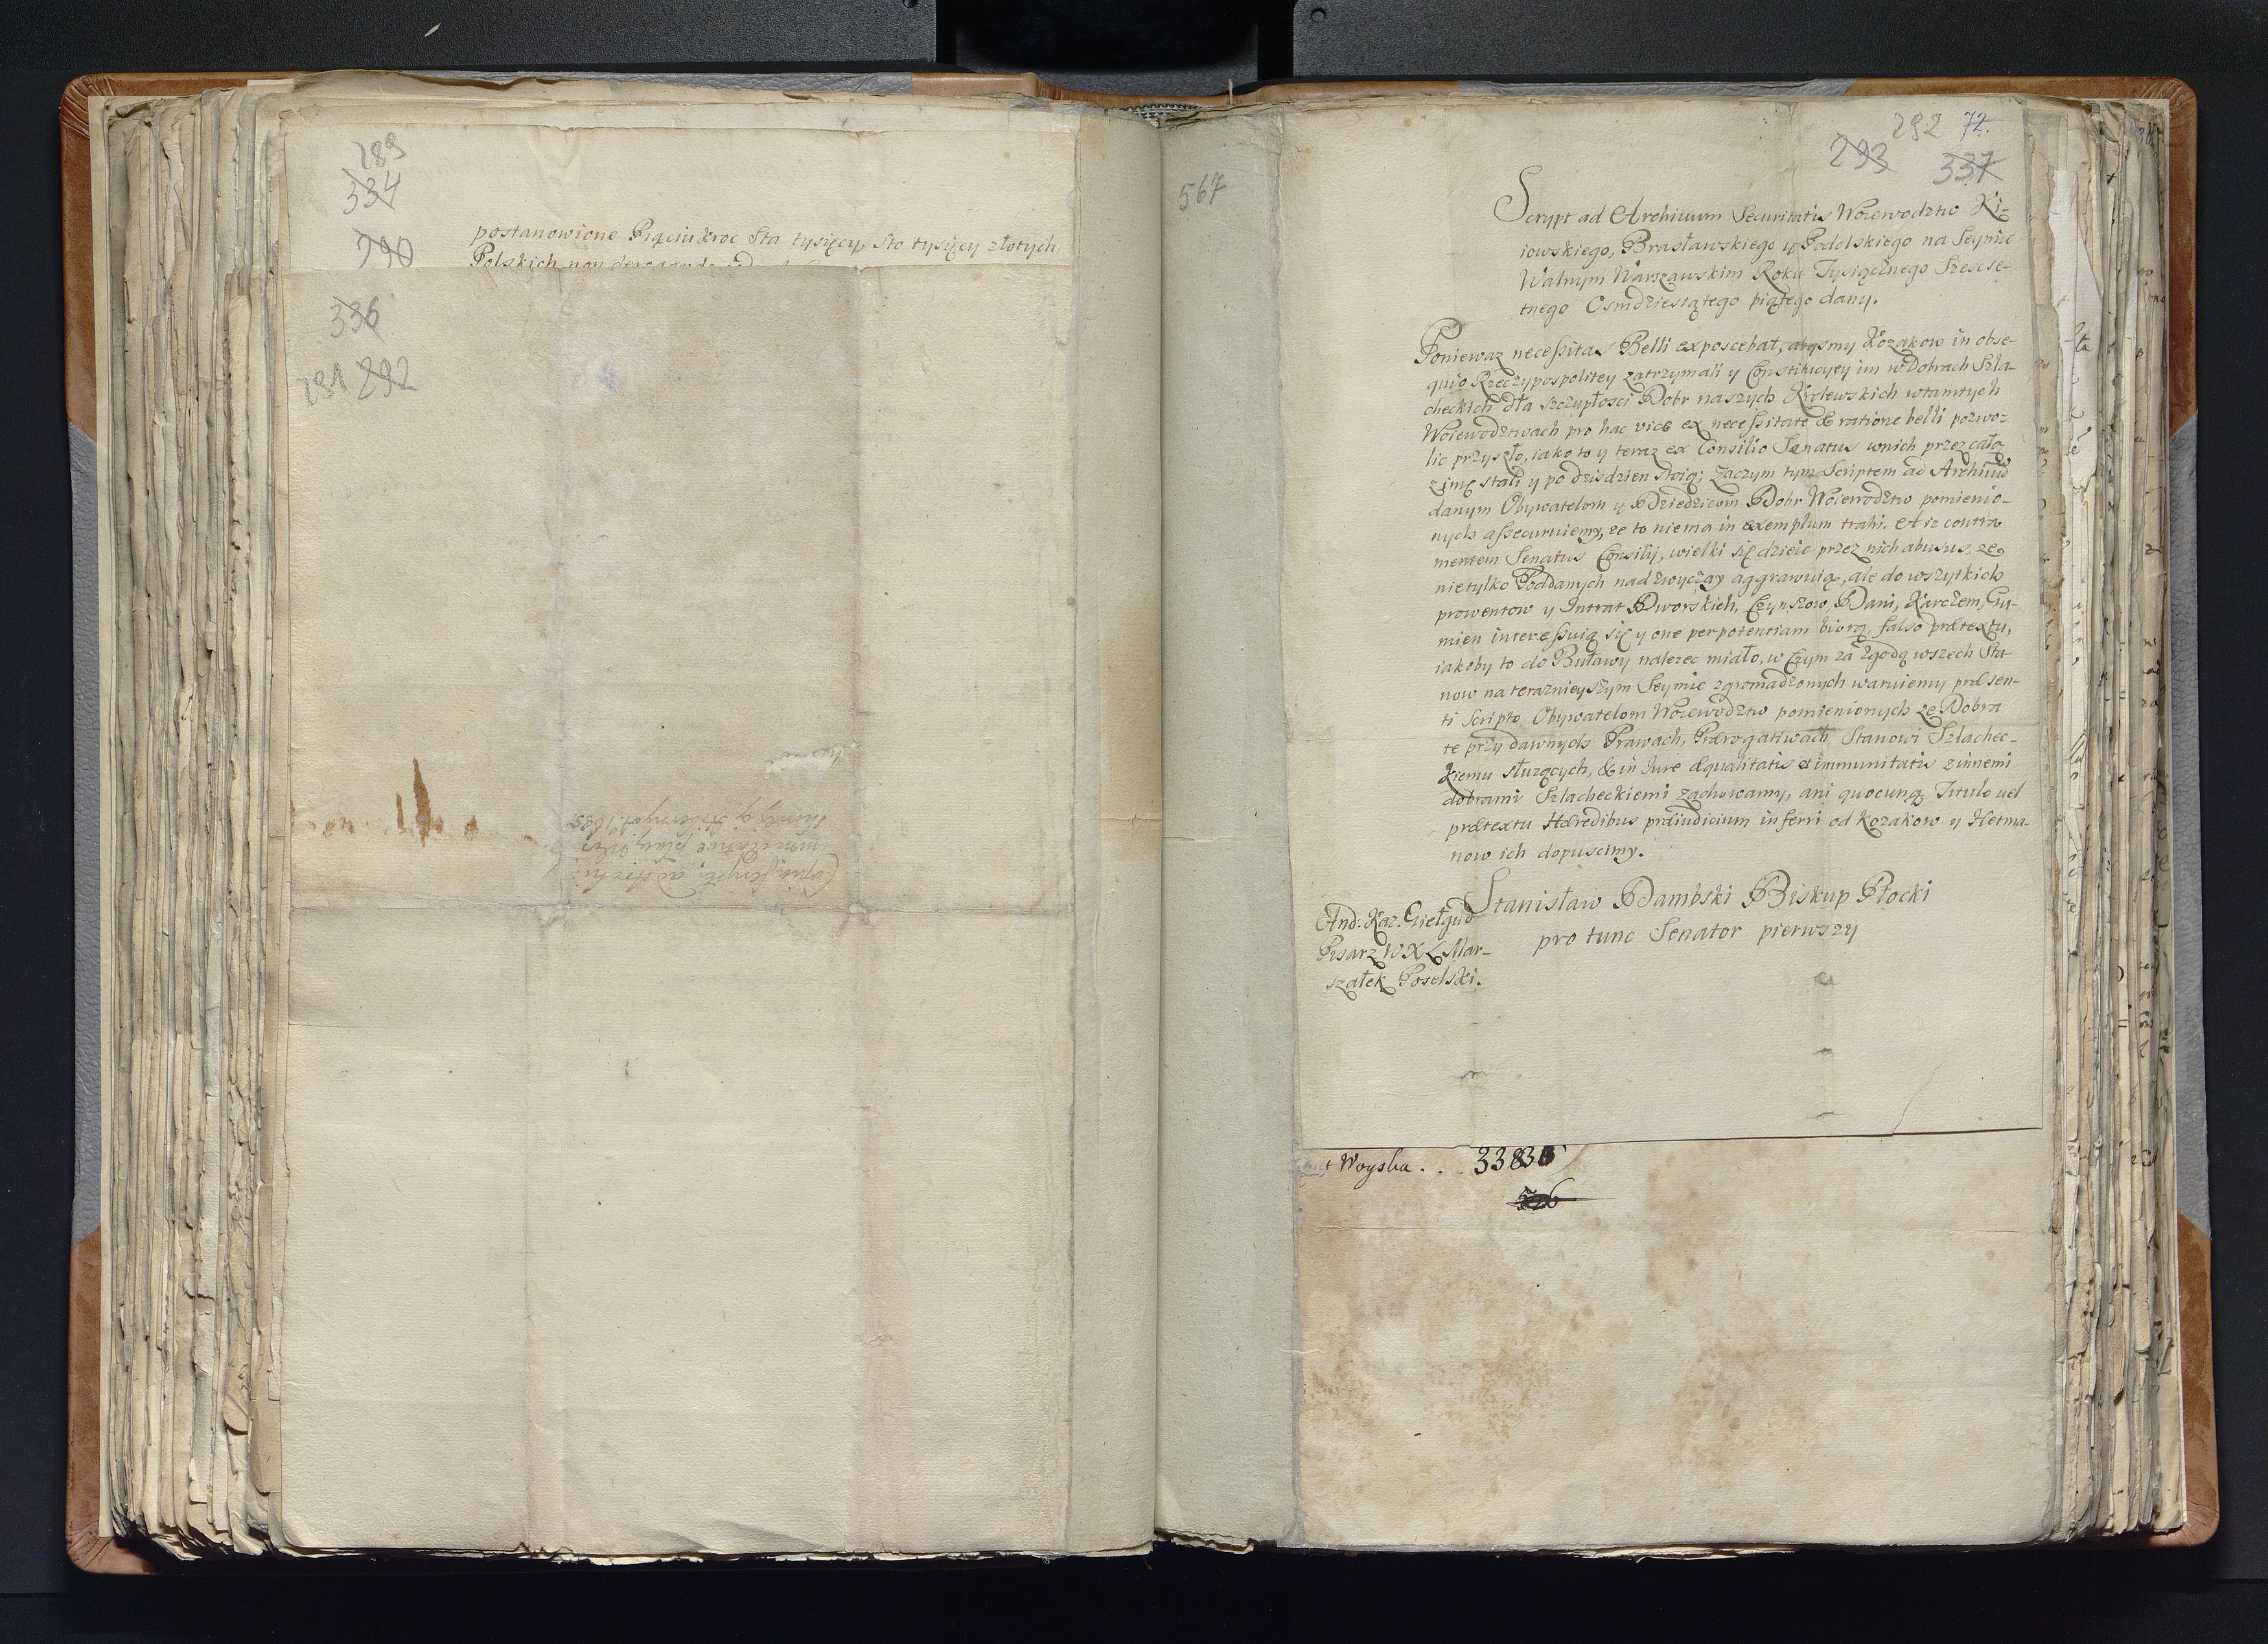 289
334
290
postanowione Pięciukroc Sta tysięcy, Sto tysięcy złotych
Polskich non
336
291 292
Copia Scripti ad Archi:
1685
567
292 72.
293 337
Scrypt ad Archiuum Securitatis Woiewodztw Ki-
iowskiego, Brasławskiego y Podolskiego na Seymie
Walnym Warszawskim Roku Tysiącznego Szescse-
tnego Osmdziesiątego piątego dany.
Poniewaz necessitas Belli exposcebat, abysmy Kozakow in obse-
quio Rzeczypospolitey zatrzymali y Constitucyey im w Dobrach Szla-
checkich dla szczupłosci Dobr naszych Krolewskich wtamtych
Woiewodztwach pro hac vice ex necessitate & ratione belli pozwo-
lic przyszło, iako to y teraz ex Consilio Senatus wnich przez cało
zimę stali y po dzisdzien stoią; Zaczym tym Scriptem ad Archiuũ
danym Obywatelom y Dziedzicom Dobr Woiewodztw pomienio-
nych assecuruiemy, ze to niema in exemplum trahi. A iz contra
mentem Senatus Consilij, wielki się dzieie przez nich abusus, ze
nie tylko Poddanych nad zwyczay aggrawuią, ale do wszytkich
prowentow y Intrat Dworskich, Czynszow, Dani, Karczem, Gu-
mien interessuią się y one per potentiam biorą, falso prætextu,
iakoby to do Buławy nalezec miało, w Czym za zgodą wszech Sta-
now na teraznieyszym Seymie zgromadzonych waruiemy præsen-
ti Scripto Obywatelom Woiewodztw pomienionych ze Dobra
te przy dawnych Prawach, Prærogatiwach Stanowi Szlachec-
kiemu słuzących, & in Jure æqualitatis et immunitatis zinnemi
dobrami Szlacheckiemi zachowamy, ani quocunq Titulo uel
prætextu Hæredibus præiudicium inferri od Kozakow y Hetma-
now ich dopuscimy.
Stanisław Dambski Biskup Płocki
pro tunc Senator pierwszy
And: Kaz. Giełgud
Pisarz W X L Mar-
szałek Poselski.
Woyska . . . 33830